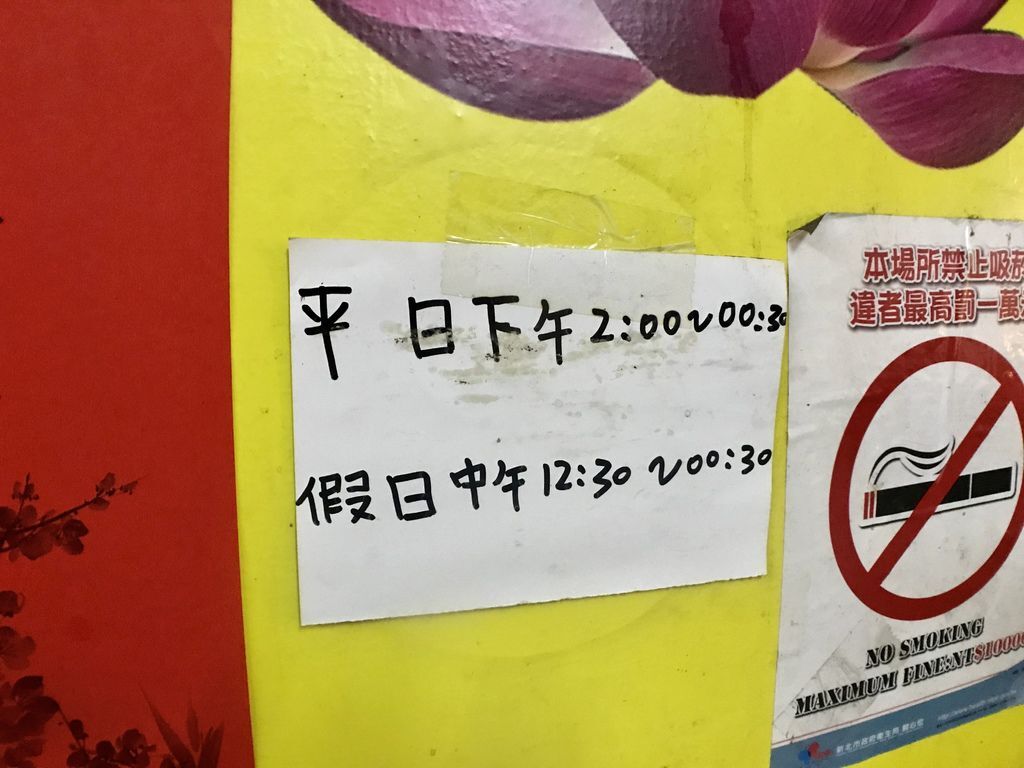 平日下午2:00~00:30
假日中午12:30~00:30
本場所禁止吸菸
違者最高罰一萬
NO SMOKING
MAXIMUM FINE:NT$10000
新北市政府衛生局 關心您